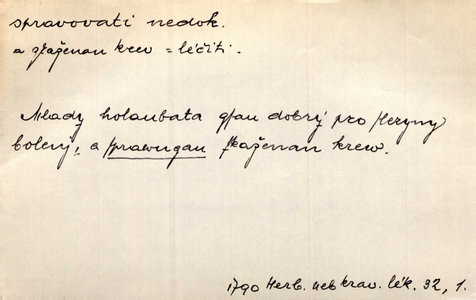 spravovati nedok.
a zkaženau krew = léčiti.
Mladý holaubata gsau dobrý pro
bolení, a sprawugau zkaženau krew.
1790 Herb. neb krav. lék. 32, 1.